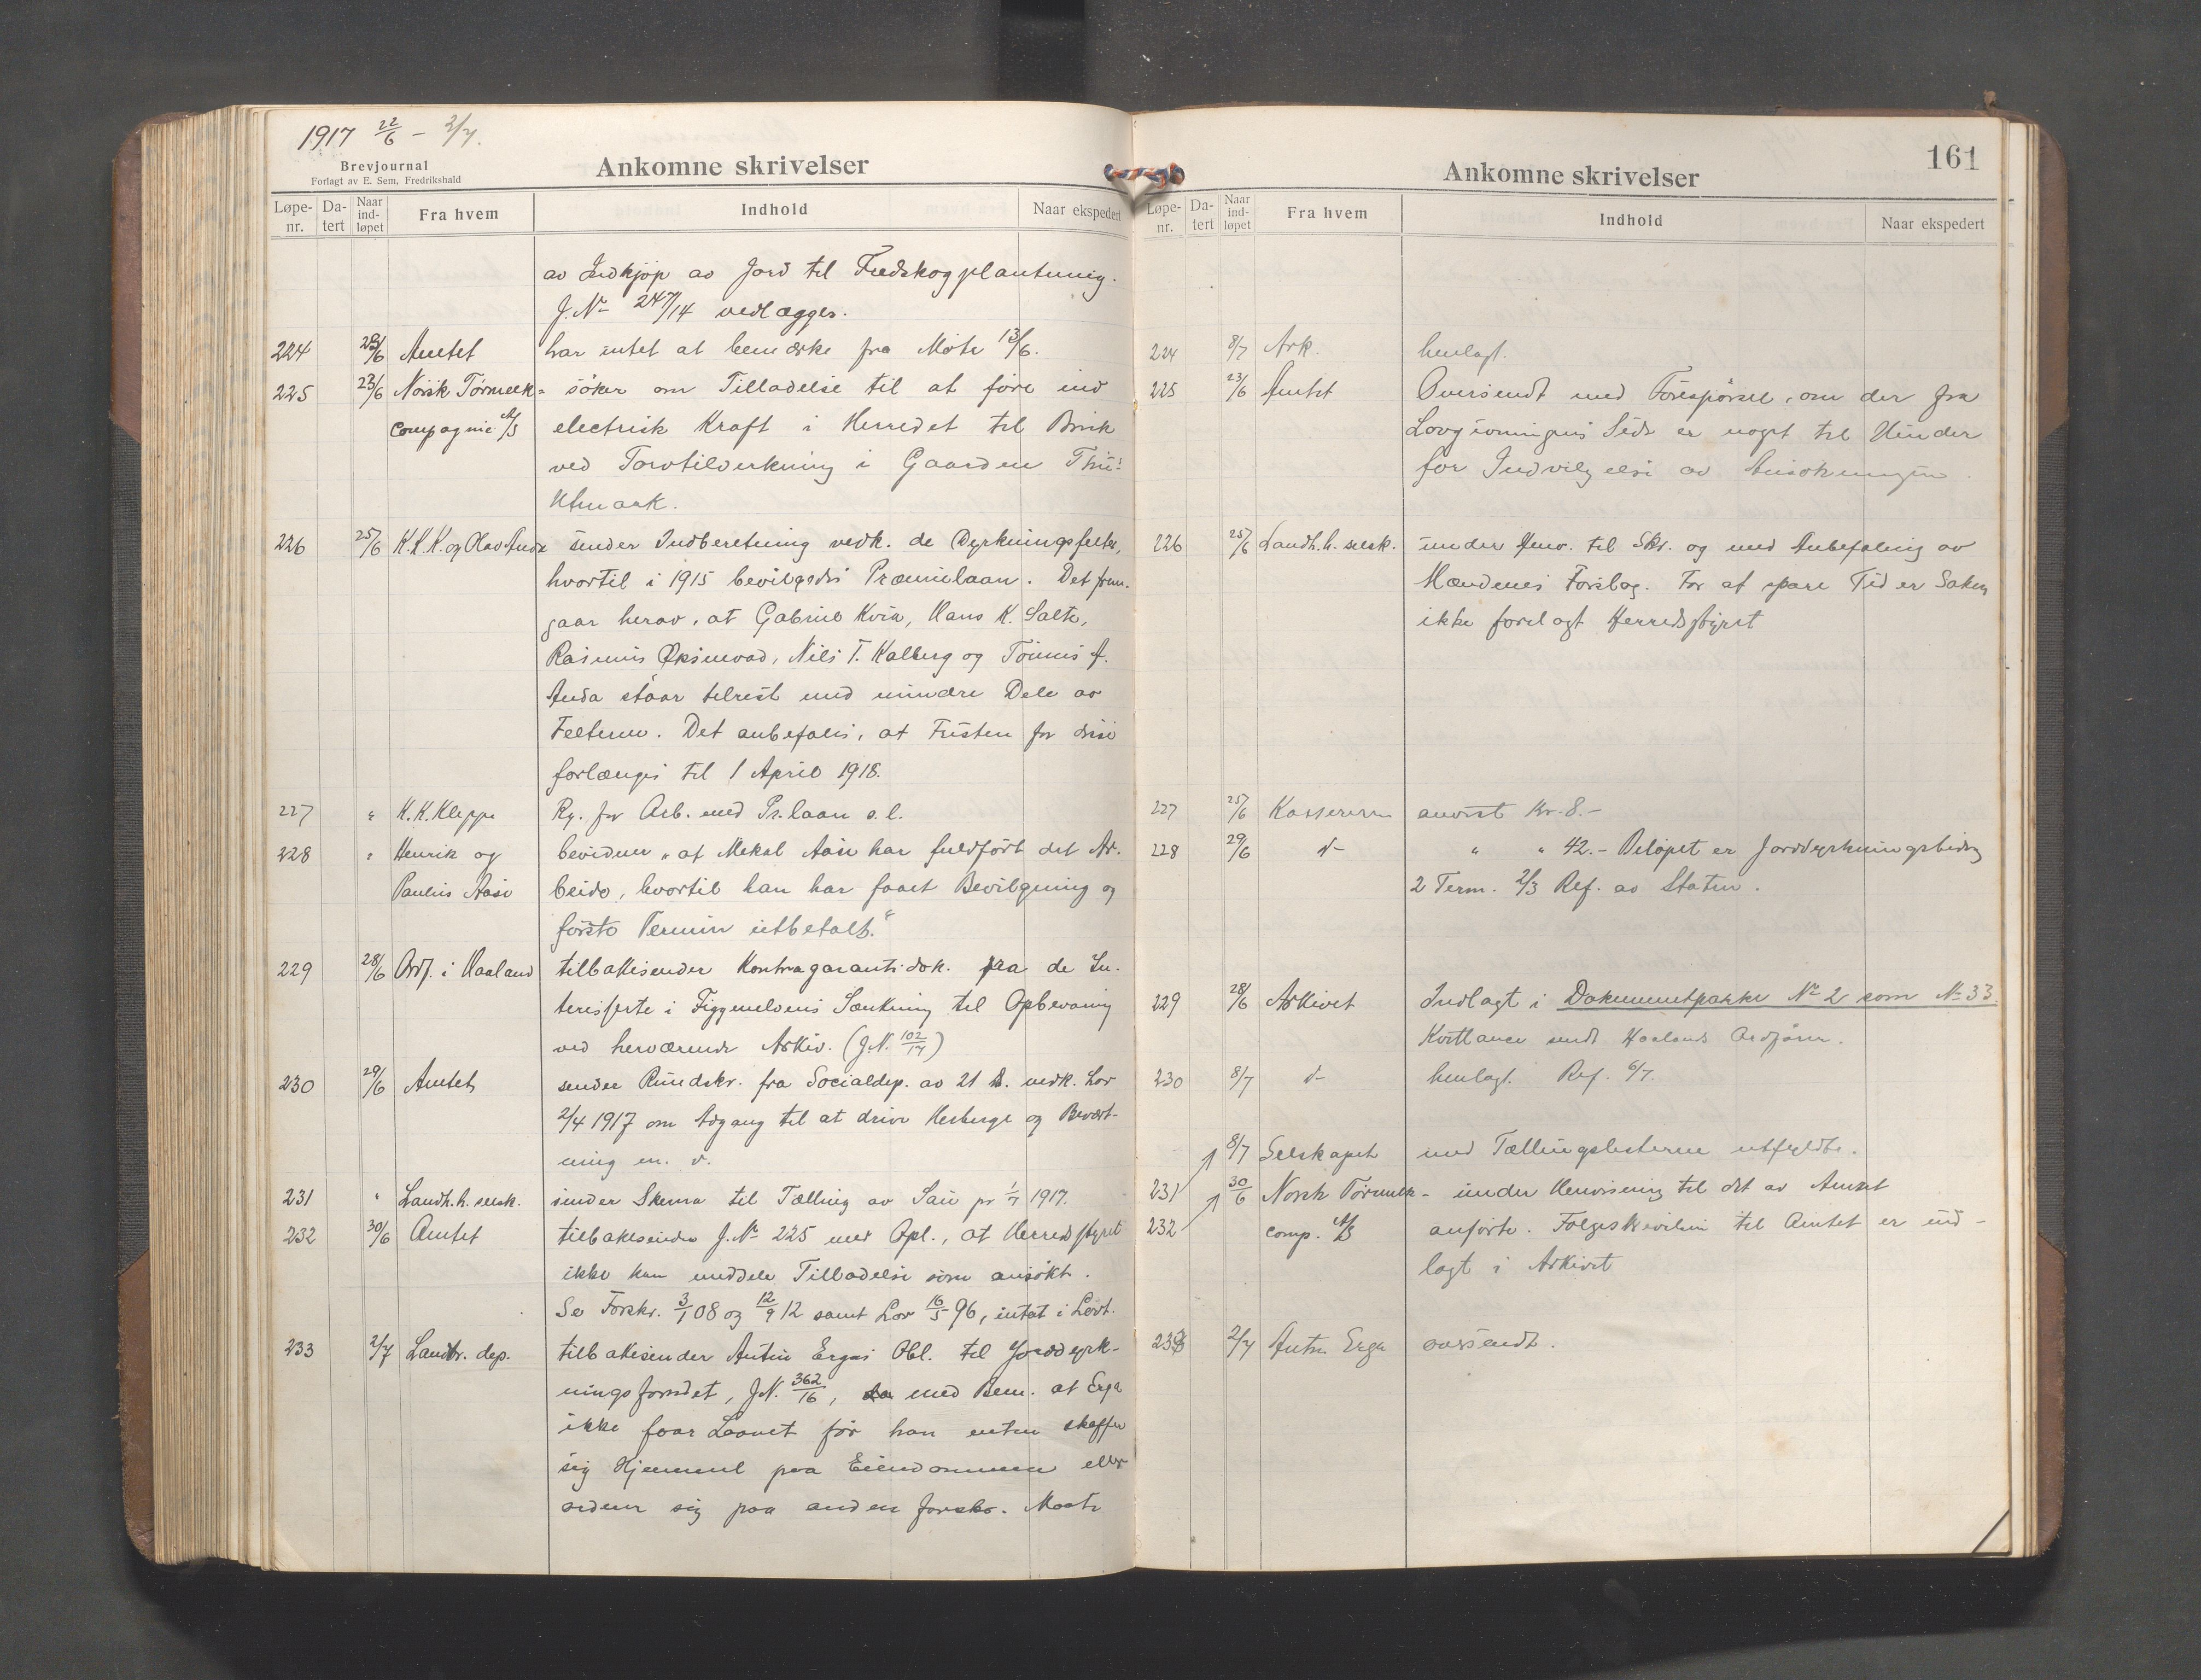 1917 22/6 – 2/7.
Brevjournal
Forlagt av E. Sem, Fredrikshald
Ankomne skrivelser
Løpe-nr. Da-tert Naar ind-løpet Fra hvem Indhold Naar ekspedert
av Indkjøp av Jord til Fredskogplantning.
J.No 247/14 vedlægges.
224 23/6 Amtet har intet at bemerke fra Møte 13/6.
225 23/6 Norsk Tørmelk= søker om Tilladelse til at føre ind
Compagnie A/S electrisk Kraft i Herredet til Bruk
ved Torvtilvirkning i Gaarden Thu's
Utmark.
226 25/6 K.K.K. og Olav Anda sender Indberetning vedk. de Dyrkningsfelter,
hvortil i 1915 bevilgedes Præmielaan. Det frem-
gaar herav, at Gabriel Kvia, Hans K. Salte,
Rasmus Øksnevad, Nils T. Kalberg og Tønnes A.
Anda staar tilrest med mindre Dele av
Felterne. Det anbefales, at Fristen for disse
forlænges til 1 April 1918.
227 " K.K. Kleppe Rg. for Arb. med Pr.laan s.l.
228 " Henrik og bevidner "at Mekal Aase har fuldført det Ar-
Paulus Aase beide, hvortil han har faaet Bevilgning og
første Termin utbetalt."
229 28/6 Ordf. i Haaland tilbakesender Kontragarantidok. fra de In-
teresserte i Figgenelvens Sænkning til Opbevaring
ved herværende Arkiv. (J.N. 102/17)
230 29/6 Amtet sender Rundskr. fra Socialdep. av 21 ds. vedk. Lov
2/4 1917 om Adgang til at drive Herberge og Bevært-
ning m. v.
231 " Landh.h. selsk. sender Skema til Tælling av Sau pr 1/7 1917.
232 30/6 Amtet tilbakesender J.No 225 med Opl., at Herredsstyret
ikke kan meddele Tilladelse som ansøkt.
Se Forskr. 3/1 08 og 12/9 12 samt Lov 16/5 96, intat i Lovt.
233 2/7 Landbr. dep. tilbakesender Anton Ergas Obl. til Jorddyrk-
ningsfondet, J.N. 362/16, med Bem. at Erga
ikke faar Laanet før han enten skaffer
sig Hjemmel paa Eiendommen eller
ordner sig paa anden forskr. Maate
161
Ankomne skrivelser
Løpe-nr. Da-tert Naar ind-løpet Fra hvem Indhold Naar ekspedert
224 8/7 Ark. henlagt.
225 23/6 Amtet Oversendt med Forespørsel, om der fra
Lovgivningens Side er noget til Hinder
for Indvilgelse av Ansøkningen.
226 25/6 Landh.h. selsk. under Henv. til Skr. og med Anbefaling av
Mændenes Forslag. For at spare Tid er Saken
ikke forelagt Herredsstyret
227 25/6 Kassereren anvist Kr. 8.–
228 29/6 d– " " 42.– Beløpet er Jorddyrkningsbidrag
2 Term. 2/3 Ref. av Staten.
229 28/6 Arkivet Indlagt i Dokumentpakke No 2 som No 33.
Kvittance sendt Haalands Ordfører.
230 8/7 d– henlagt. Ref. 6/7.
8/7 Selskapet med Tællingslisterne utfyldte.
231 30/6 Norsk Tørmelk- under Henvisning til det av Amtet
232 comp. A/S anførte. Følgeskrivelsen til Amtet er ind-
lagt i Arkivet
233 2/7 Anton Erga oversendt.